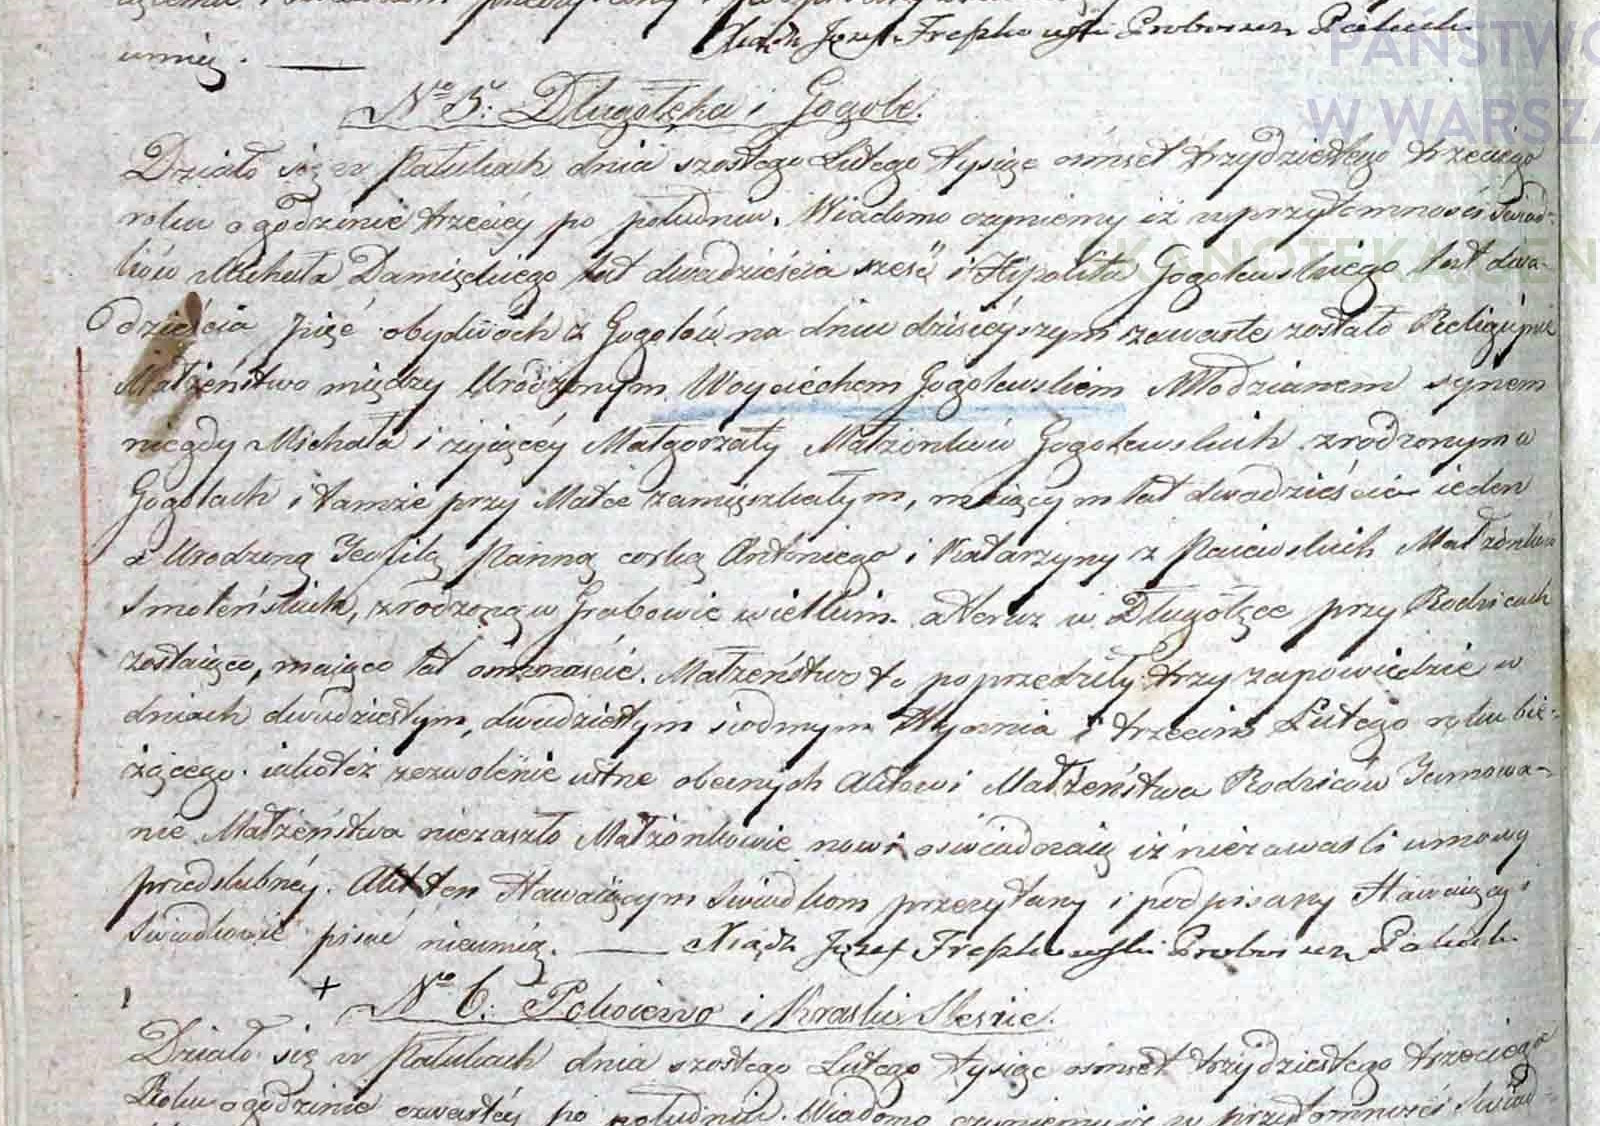 umieją. Xiądz Józef Trepkowski Proboszcz Pałuck.
No 5. Długołęka i Gogole.
Działo się w Pałukach dnia szóstego Lutego tysiąc ośmset trzydziestego trzeciego
roku o godzinie trzeciey po południu. Wiadomo czyniemy iż w przytomności świad-
ków Michała Damięckiego lat dwadzieścia sześć i Hypolita Gogolewskiego lat dwa-
dzieścia pięć obydwóch z Gogolów na dniu dzisieyszym zawarte zostało Religijne
Małżeństwo między Urodzonym Woyciechem Gogolewskiem Młodzianem synem
niegdy Michała i żyiącéy Małgorzaty Małżonków Gogolewskich zrodzonym w
Gogolach i tamże przy Matce zamięszkałym, maiącym lat dwadzieścia ieden
a Urodzoną Teofilą Panną corką Antoniego i Katarzyny z Małżonków
Smoleńskich, zrodzoną w Grabowie wielkim a teraz w Długołęce przy Rodzicach
zostaiąco, maiąco lat ośmnaście. Małżeństwo to poprzedziły trzy zapowiedzie w
dniach dwudziestym, dwudziestym siodmym Stycznia i trzecim Lutego roku bie-
żącego iakoteż zezwolenie ustne obecnych Aktowi Małżeństwa Rodziców Tamowa-
nie Małżeństwa niezaszło Małżonkowie nowi oświadczaią iż niezawarli umowy
przedslubnéy. Akt ten Stawaiącym Swiadkom przeczytany i podpisany Stawaiący i
Swiadkowie pisać nieumią. Xiądz Józef Trepkowski Proboszcz Paluck.
No 6. Pokoiewo i Kraski Slesne.
Działo się w Pałukach dnia szóstego Lutego tysiąc ośmset trzydziestego trzeciego
Roku o godzinie czwartéy po południu. Wiadomo czyniemy iż w przytomności Swiad-
PAŃSTWO
W WARSZA
SKANOTEKA.GEN